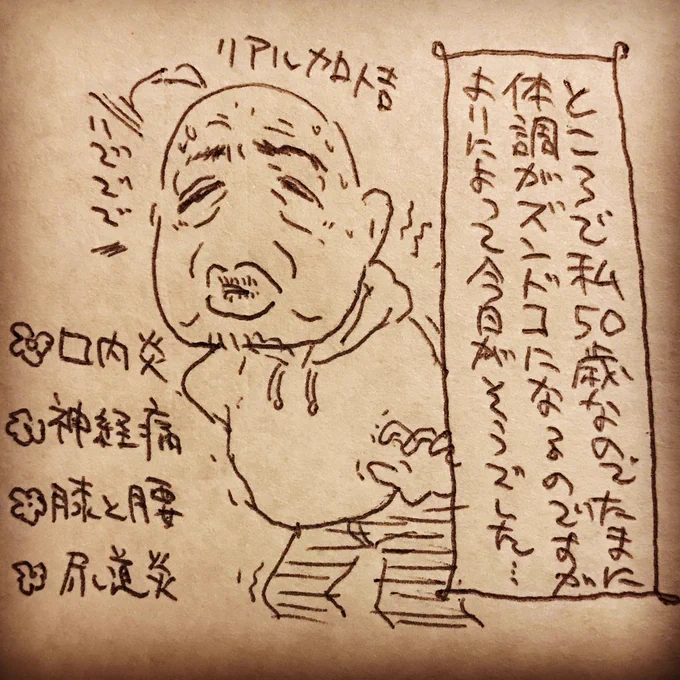 リアル加ト吉
ところで私50歳なのでたまに
体調がズンドコになるのですが
よりによって今日がそうでした…
口内炎
神経痛
膝と腰
尿道炎